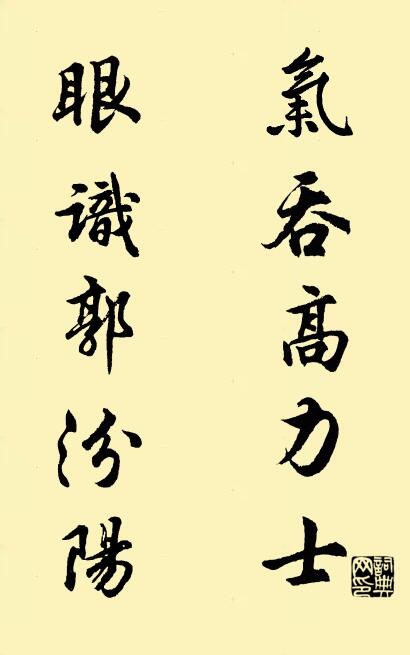 氣吞高力士
眼識郭汾陽
詞典网印